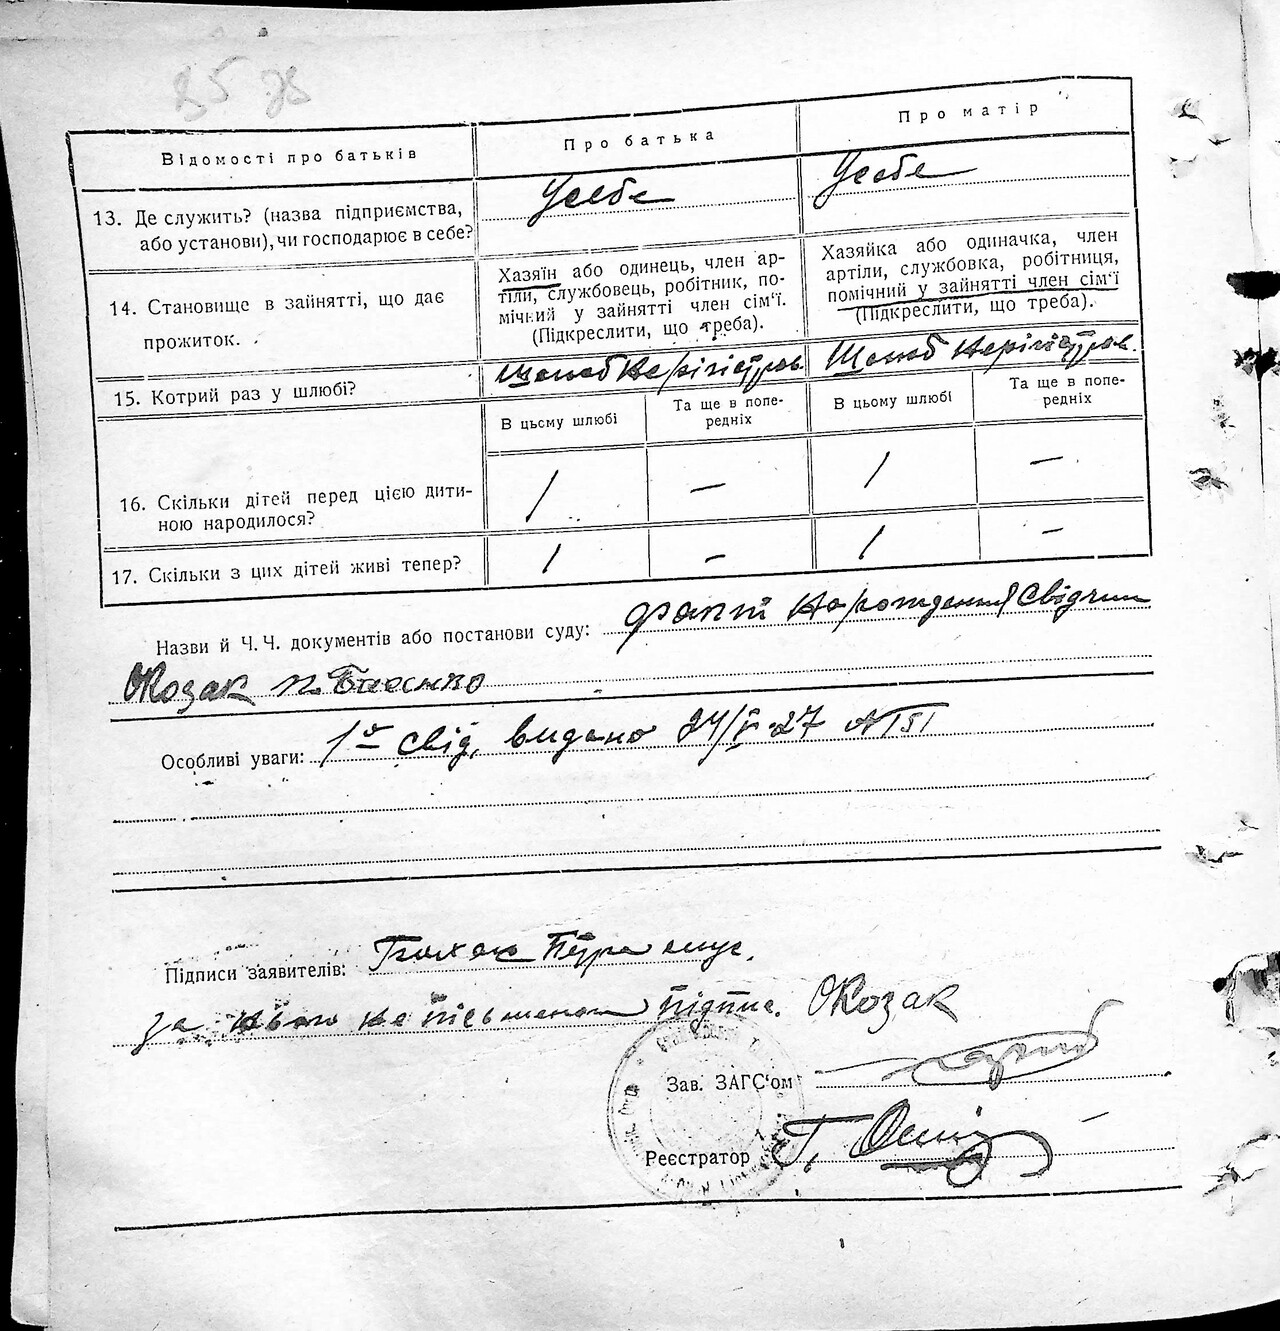 85 зв
Відомості про батьків
Про батька
Про матір
13. Де служить? (назва підприємства, або установи), чи господарює в себе?
Усебе
Усебе
14. Становище в зайнятті, що дає прожиток.
Хазяїн або одинець, член ар-
тіли, службовець, робітник, по-
мічний у зайнятті член сім'ї.
(Підкреслити, що треба).
Хазяйка або одиначка, член
артіли, службовка, робітниця,
помічний у зайнятті член сім'ї
(Підкреслити, що треба).
15. Котрий раз у шлюбі?
Шлюб
Шлюб
В цьому шлюбі
Та ще в попе-
редніх
В цьому шлюбі
Та ще в попе-
редніх
16. Скільки дітей перед цією дити-
ною народилося?
1 — 1 —
17. Скільки з цих дітей живі тепер?
1 — 1 —
Назви й Ч. Ч. документів або постанови суду: факт народження свідчит
ОКозак
Особливі уваги: 1е свід, видано 24/V-27 № 151
Підписи заявителів:
за нього не письменого підпис. ОКозак
Зав. ЗАГС'ом
Реєстратор Г.